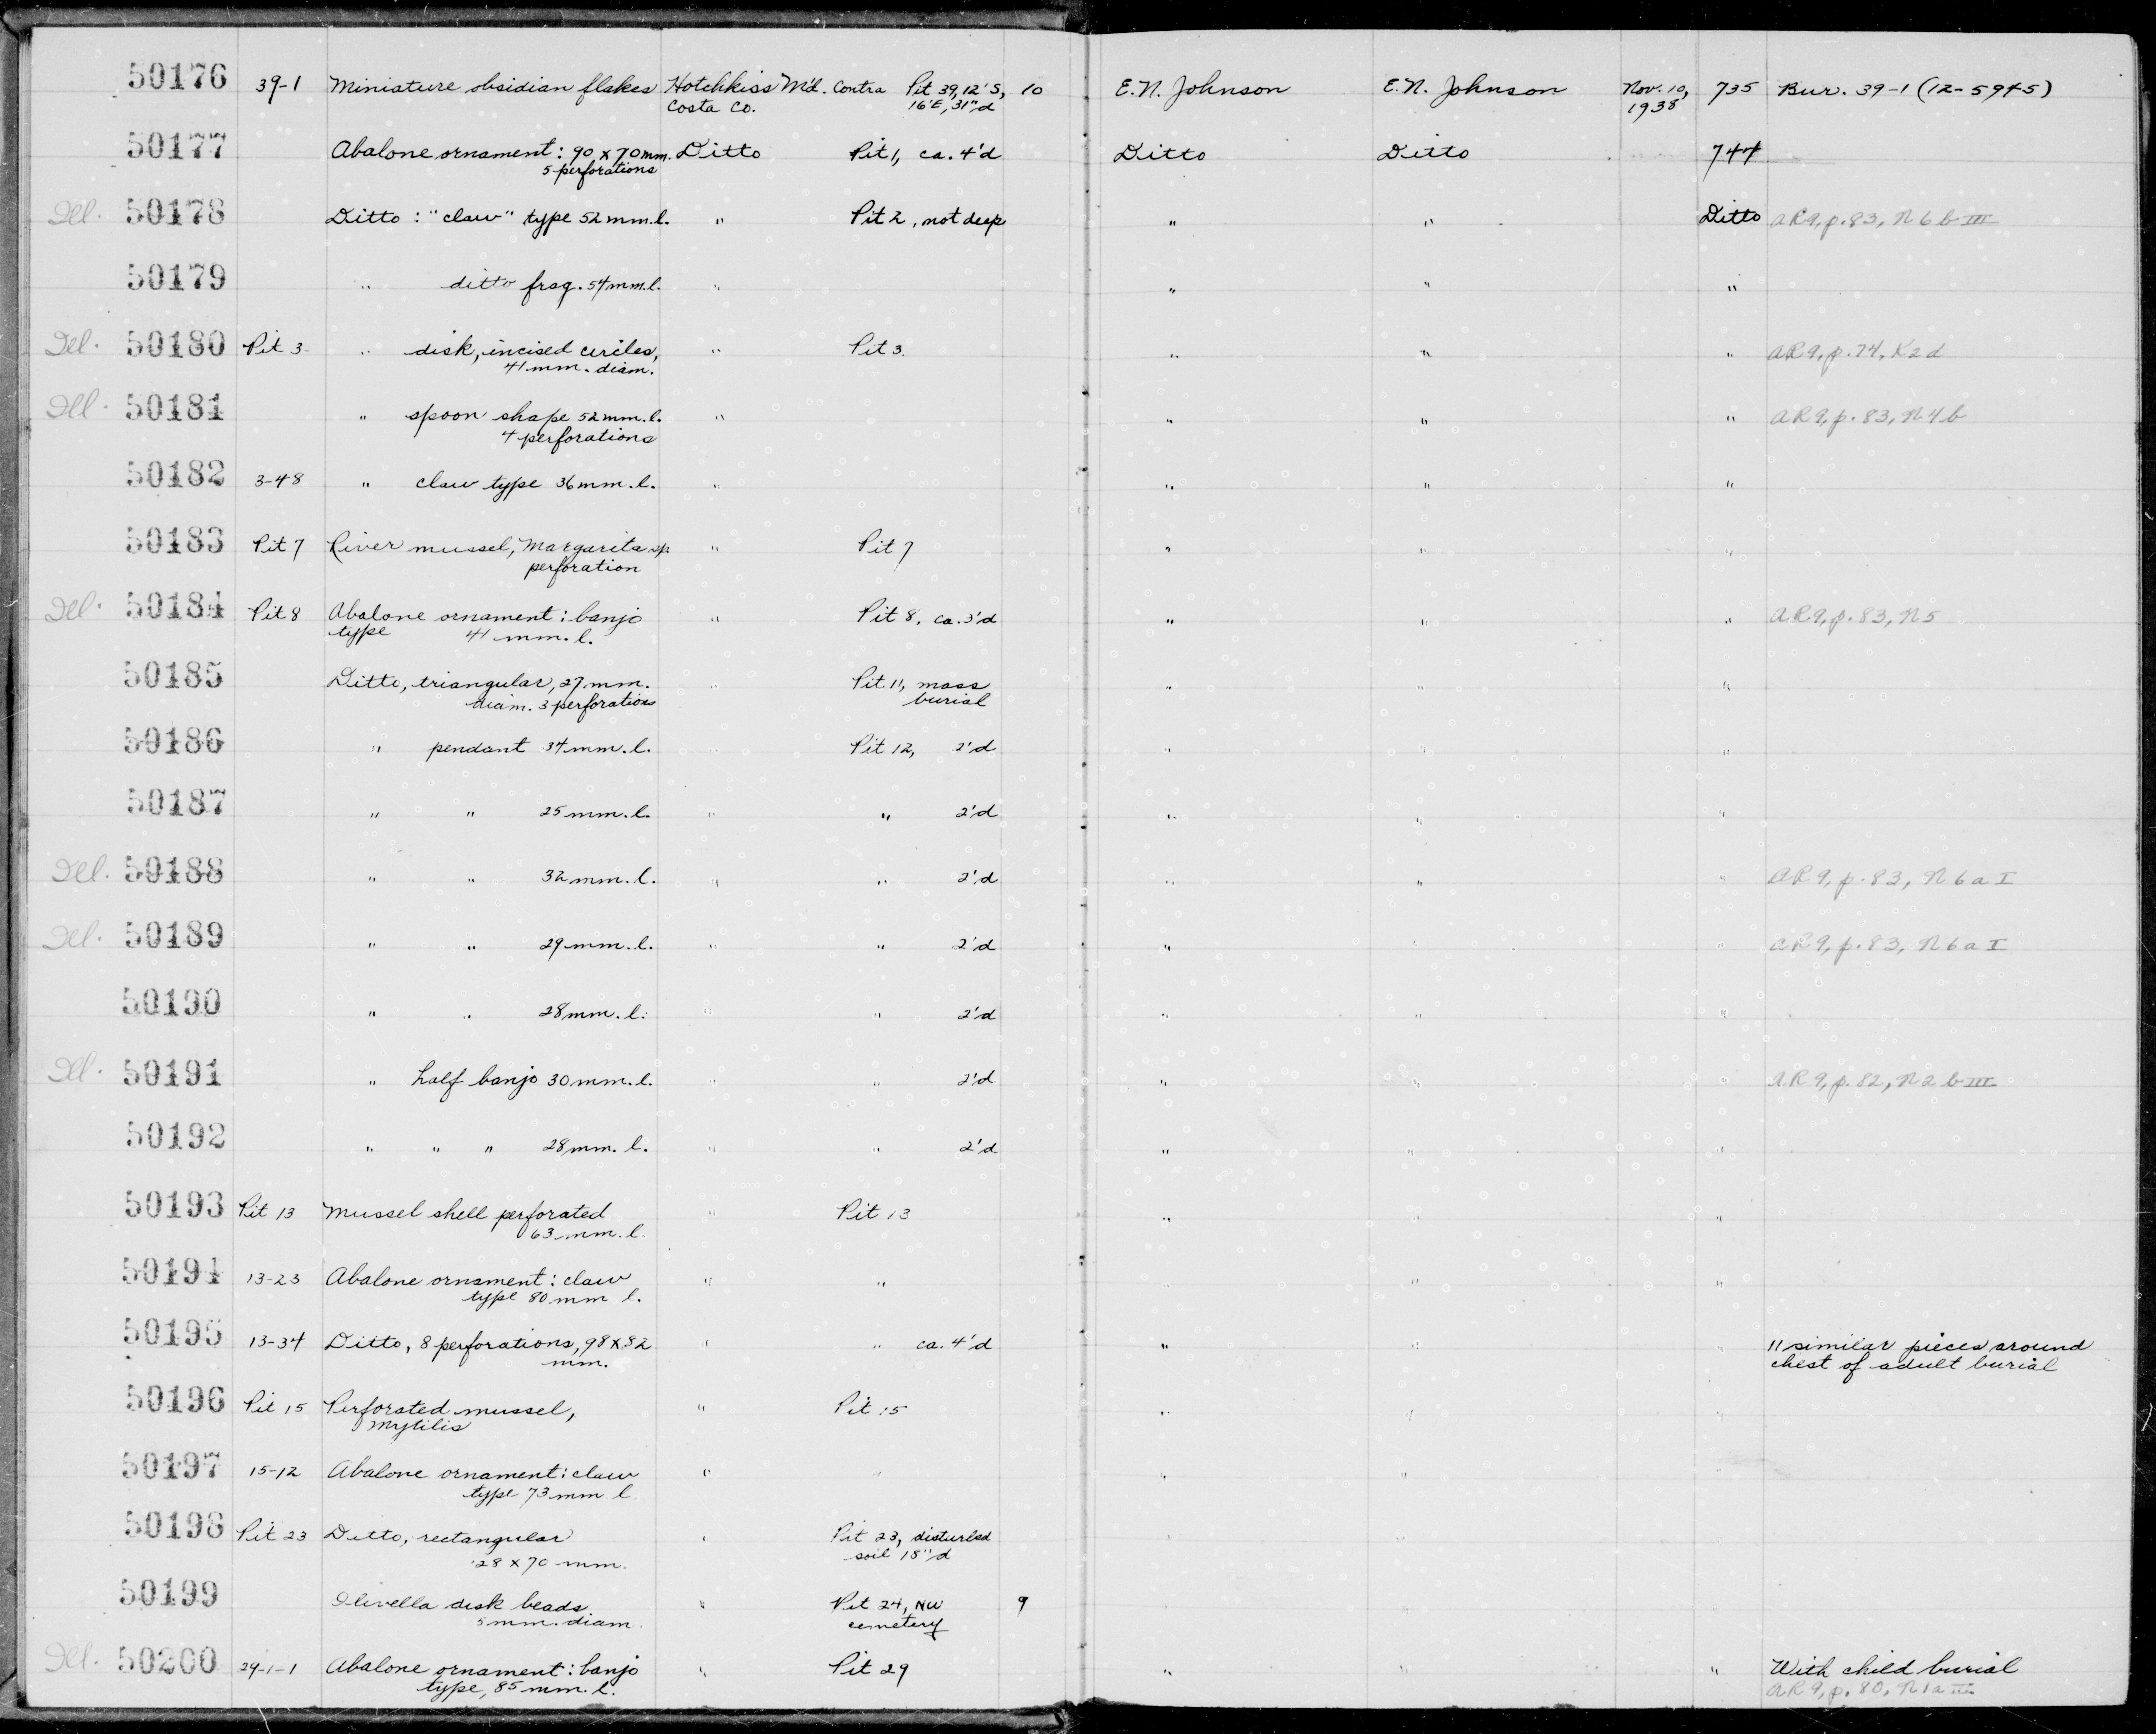 50176 39-1 Miniature obsidian flakes Hotchkiss Md. Contra Pit 39, 12'S, 10 E.N. Johnson E.N. Johnson Nov. 10, 735 Bur. 39-1 (12-5945)
Costa Co. 16'E, 31"d 1938
50177 Abalone ornament: 90 x 70 mm. Ditto Pit 1, ca. 4'd Ditto Ditto 744
5 perforations
Ill. 50178 Ditto: "claw" type 52 mm. l. " Pit 2, not deep " " Ditto AR9, p. 83, N6bIII
50179 " ditto frag. 54 mm. l. " " " "
Ill. 50180 Pit 3 " disk, incised circles, " Pit 3. " " " AR9, p. 74, K2d
41 mm. diam.
Ill. 50181 " spoon shape 52 mm. l. " " " " AR9, p. 83, N4b
4 perforations
50182 3-48 " claw type 36 mm. l. " " " "
50183 Pit 7 River mussel, Margarita sp. " Pit 7 " " "
perforation
Ill. 50184 Pit 8 Abalone ornament: banjo " Pit 8, ca. 3'd " " " AR9, p. 83, N5
type 41 mm. l.
50185 Ditto, triangular, 27 mm. " Pit 11, mass " " "
diam. 3 perforations burial
50186 " pendant 34 mm. l. " Pit 12, 2'd " " "
50187 " " 25 mm. l. " " 2'd " " "
Ill. 50188 " " 32 mm. l. " " 2'd " " " AR9, p. 83, N6aI
Ill. 50189 " " 29 mm. l. " " 2'd " " " AR9, p. 83, N6aI
50190 " " 28 mm. l. " " 2'd " " "
Ill. 50191 " half banjo 30 mm. l. " " 2'd " " " AR9, p. 82, N2bIII
50192 " " " 28 mm. l. " " 2'd " " "
50193 Pit 13 Mussel shell perforated " Pit 13 " " "
63 mm. l.
50194 13-23 Abalone ornament: claw " " " " "
type 80 mm l.
50195 13-34 Ditto, 8 perforations, 98 x 82 " " ca. 4'd " " " 11 similar pieces around
mm. chest of adult burial
50196 Pit 15 Perforated mussel, " Pit 15 " " "
Mytilis
50197 15-12 Abalone ornament: claw " " " " "
type 73 mm l.
50198 Pit 23 Ditto, rectangular " Pit 23, disturbed " " "
28 x 70 mm. soil 18"d
50199 Olivella disk beads " Pit 24, NW 9 " " "
5 mm. diam. cemetery
Ill. 50200 29-1-1 Abalone ornament: banjo " Pit 29 " " " With child burial
type, 85 mm. l. AR9, p. 80, N1aIII